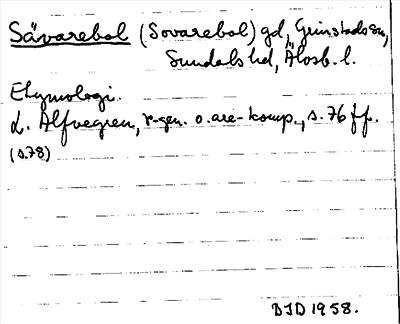 Sävarebol (Sovarebol) gd, Grinstads sn,
Sundals hd, Älvsb. l.
Etymologi.
L. Alfvegren, r-gen. o. are-komp., s. 76 ff.
(s. 78)
BJD 1958.